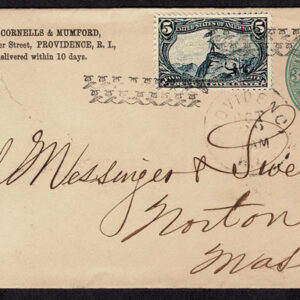 CORNELLS & MUMFORD,
er Street, PROVIDENCE, R. I.,
elivered within 10 days.
UNITED STATES OF AMERICA
5 5
OVIDENC
AM
Messinger &
Norton
Mas